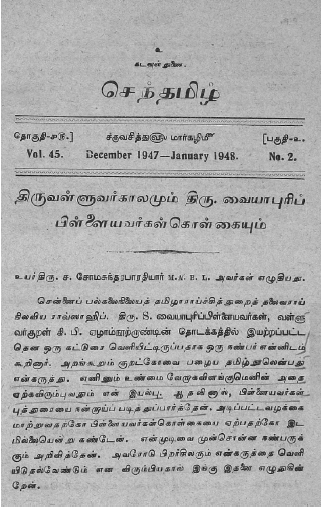 உ
கடவுள் துணை.
செந்தமிழ்
தொகுதி-சரு.] சர்வசித்துவுல மார்கழிமீ [பகுதி-உ.
Vol. 45. December 1947—January 1948. No. 2.
திருவள்ளுவர்காலமும் திரு. வையாபுரிப்
பிள்ளையவர்கள்கொள்கையும்
உயர்திரு. ச. சோமசுந்தரபாரதியார் M.A. B.L. அவர்கள் எழுதியது.
சென்னைப் பல்கலைநிலையத் தமிழாராய்ச்சித்துறைத் தலைவராய்
நிலவிய ராவ்ஸாஹிப். திரு. S. வையாபுரிப்பிள்ளையவர்கள், வள்ளு
வர்குறள் கி. பி. ஏழாம்நூற்றுண்டின் தொடக்கத்தில் இயற்றப்பட்ட
தென ஒரு கட்டுரை வெளியிட்டிருப்பதாக ஒரு நண்பர் என்னிடம்
கூறினார். அறங்கூறும் குறட்கோவை பழைய தமிழ்நூலென்பது
என்கருத்து. எனினும் உண்மை வேறுவிளங்குமெனின் அதை
ஏற்கவிரும்புவதும் என் இயல்பு. ஆதலினால், பிள்ளையவர்கள்
புத்துரையை நன்குய்ப் படித்துப்பார்த்தேன். அடிப்பட்டவழக்கை
மாற்றுவதற்கோ பிள்ளையவர்கள்கொள்கையை ஏற்பதற்கோ இட
மில்லையென்று கண்டேன். என்முடிவை முன்சொன்ன நண்பருக்
கும் அறிவித்தேன். அவரோடு பிறர்சிலரும் என்கருத்தை வெளி
யிடுதல்வேண்டும் என விரும்பியதால் இங்கு இதனை எழுதுகின்
றேன்.